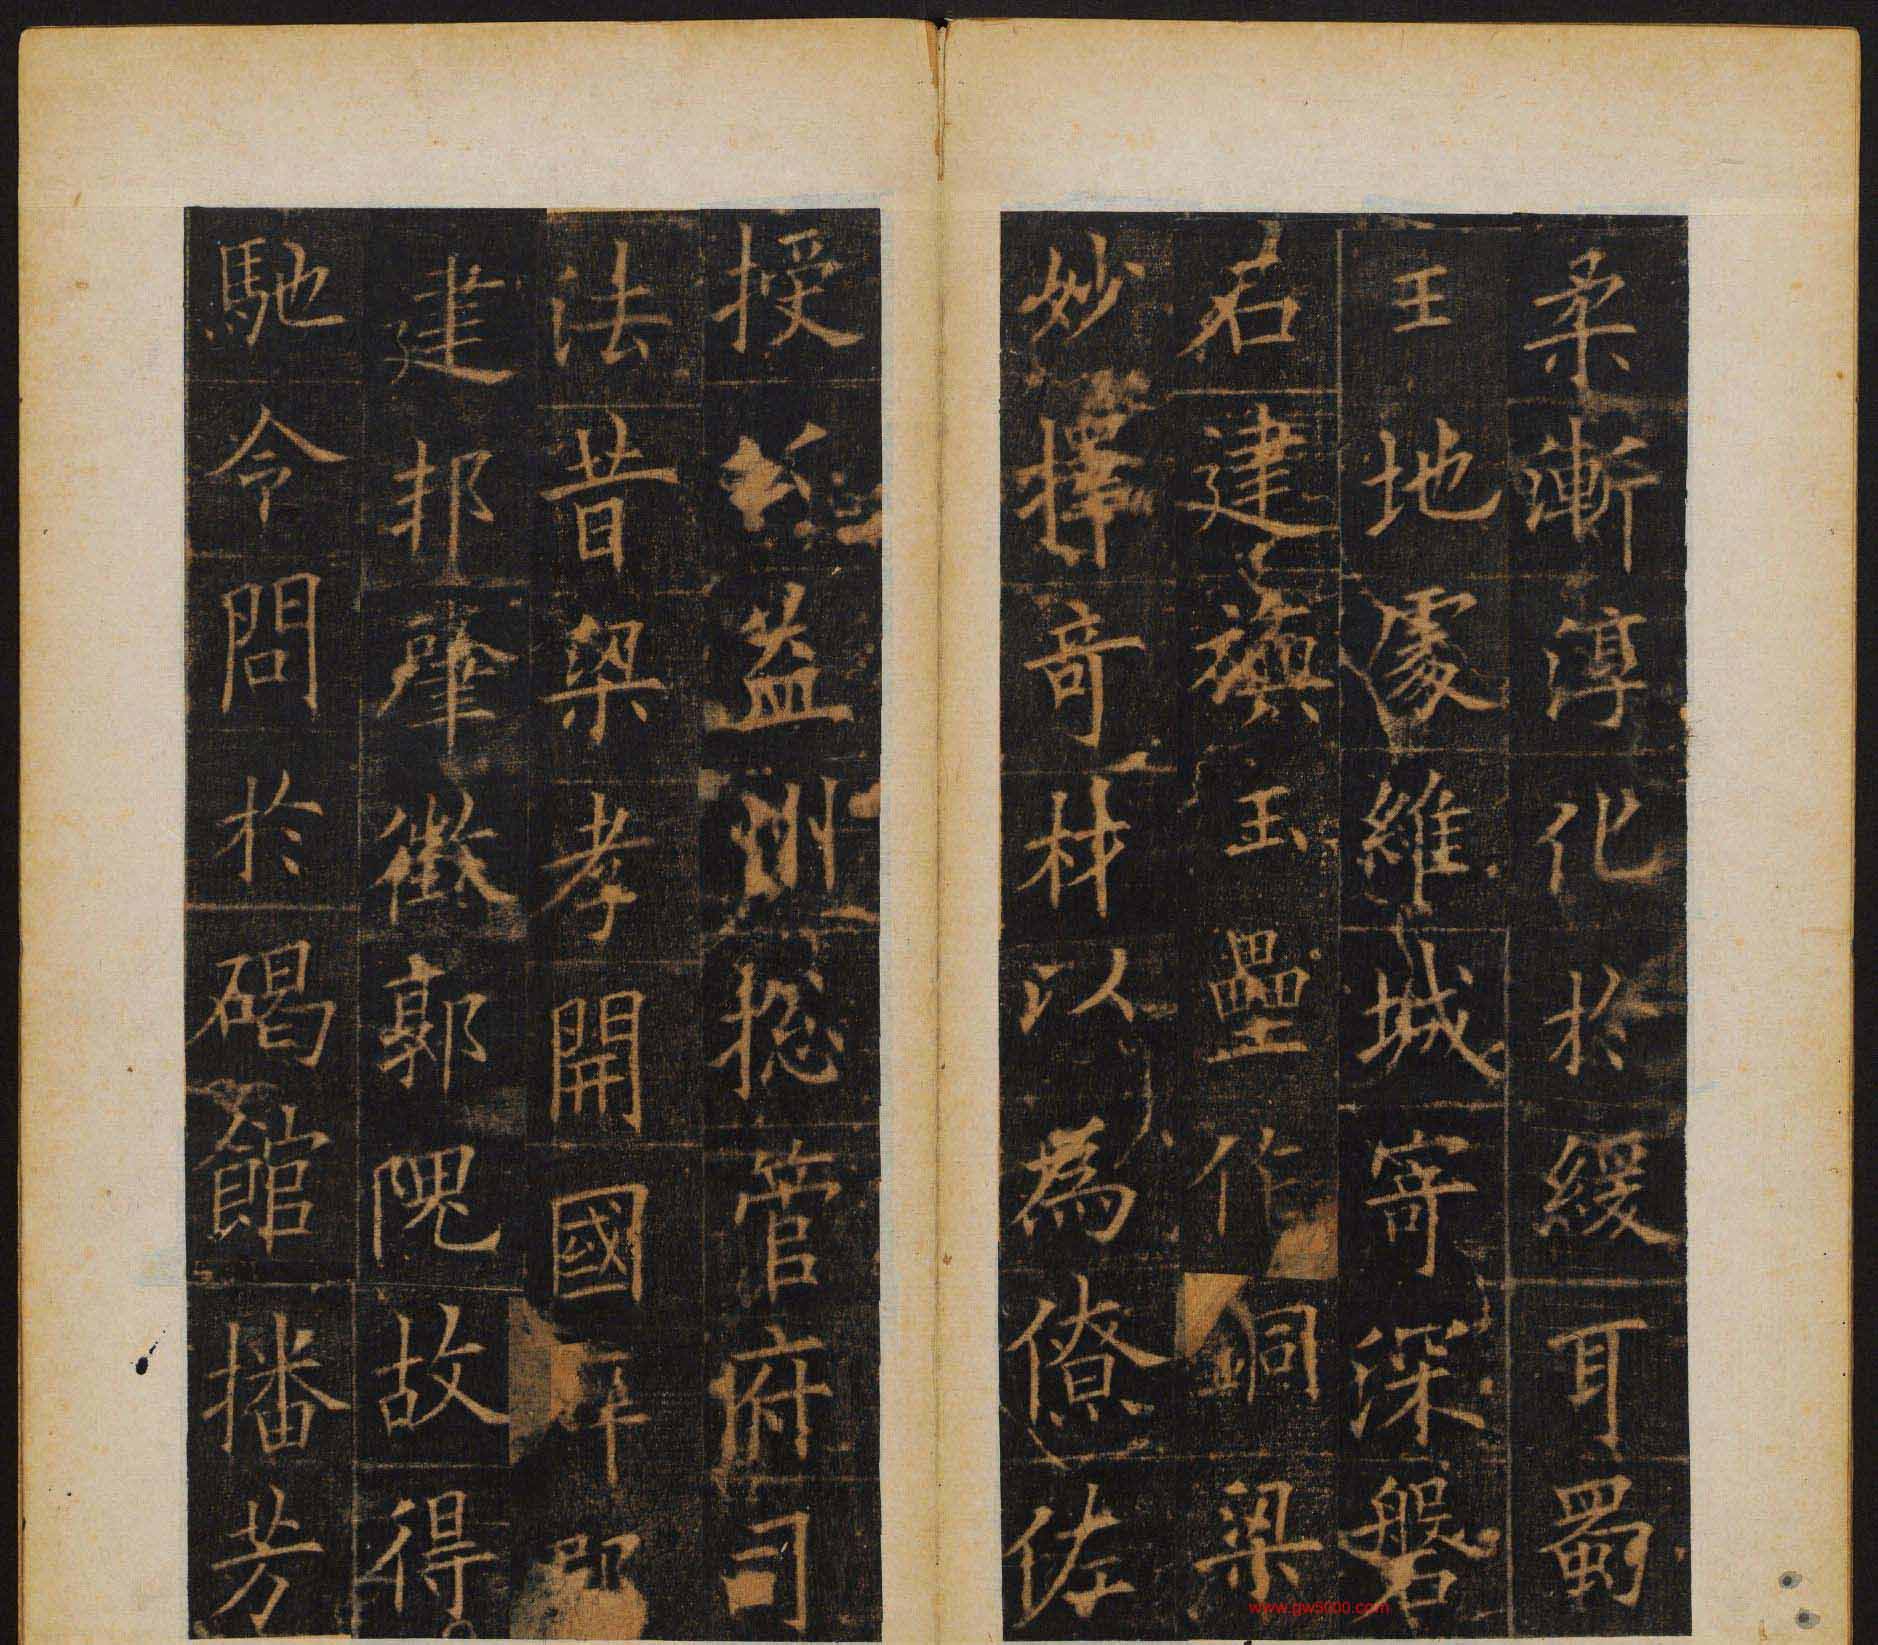 柔漸淳化於緩耳蜀
王地處維城寄深磐
石建旟玉壘作銅梁
妙擇竒材以為僚佐
授公益州捴管府司
法昔梁孝開國
建邦肇徵郭隗故得
馳令問於碣館播芳
www.gw5000.com